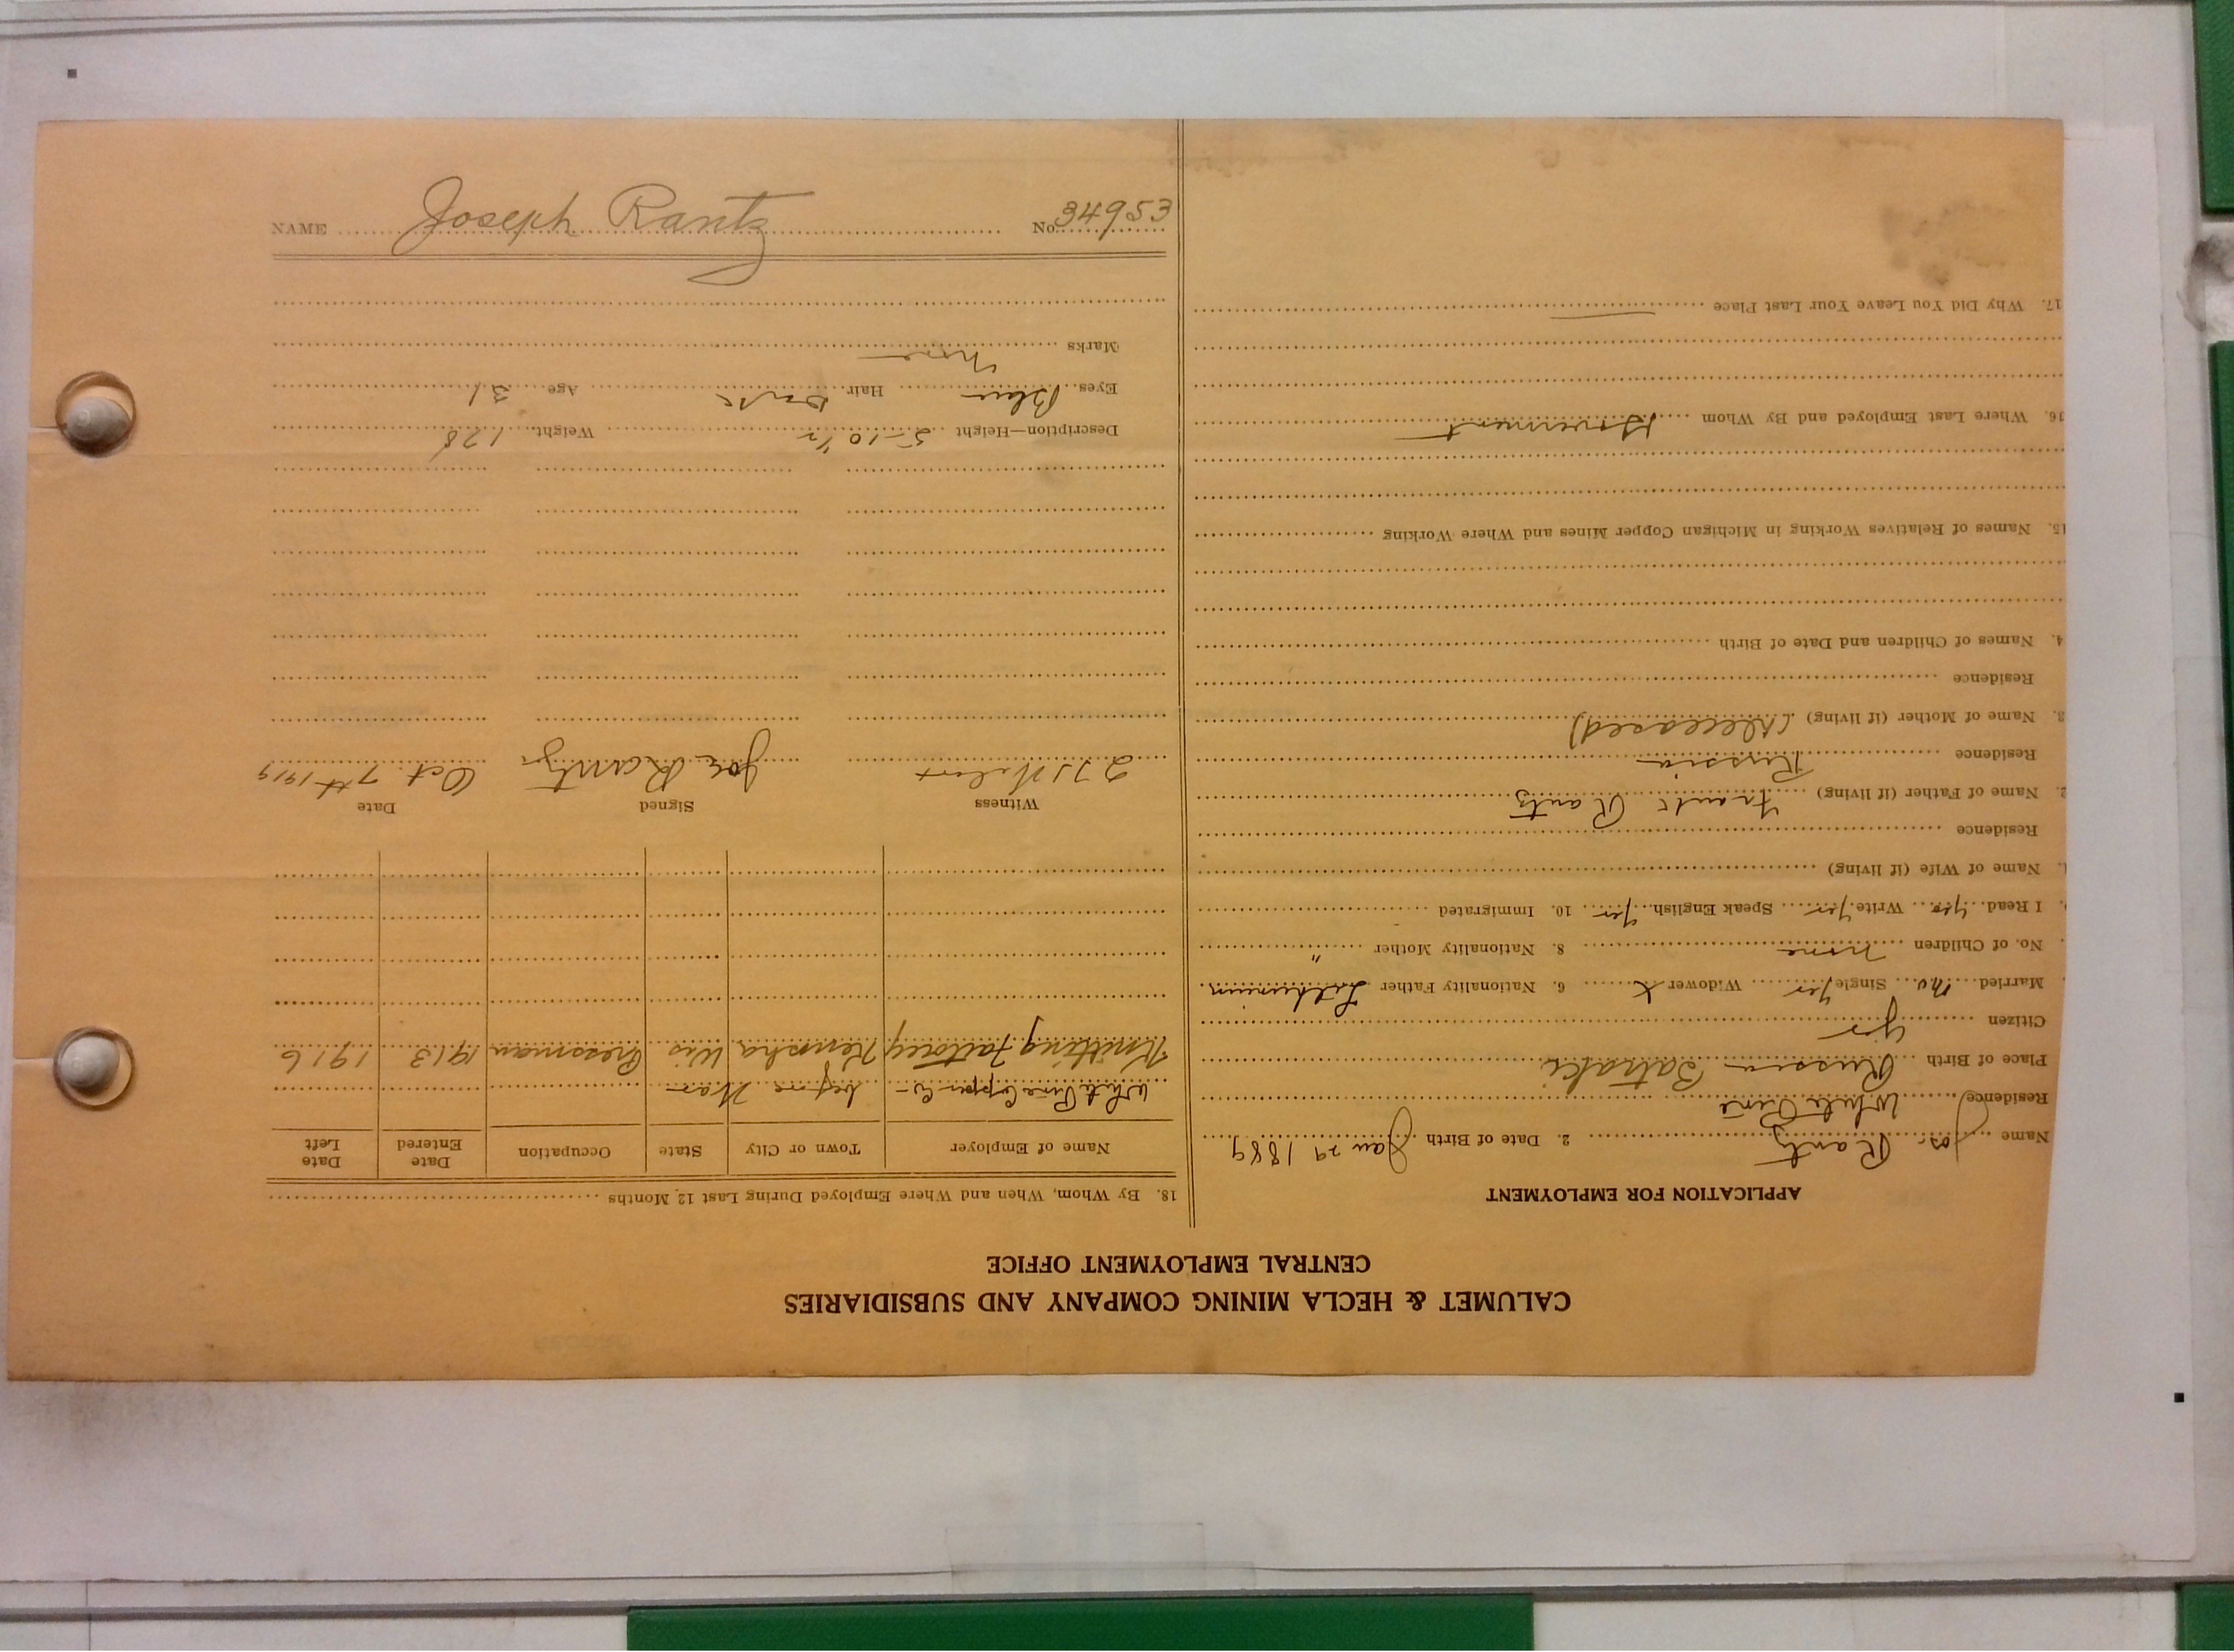 CALUMET & HECLA MINING COMPANY AND SUBSIDIARIES
CENTRAL EMPLOYMENT OFFICE
APPLICATION FOR EMPLOYMENT
Name Jos. Rantz 2. Date of Birth Jan 29 1889
Residence White Pine
Place of Birth Russia
Citizen yes
Married no Single yes Widower x 6. Nationality Father
No. of Children none 8. Nationality Mother "
9. I Read yes Write yes Speak English yes 10. Immigrated
1. Name of Wife (if living)
Residence
2. Name of Father (if living) Frank Rantz
Residence Russia
3. Name of Mother (if living) (deceased)
Residence
4. Names of Children and Date of Birth
15. Names of Relatives Working in Michigan Copper Mines and Where Working
16. Where Last Employed and By Whom Government
17. Why Did You Leave Your Last Place
18. By Whom, When and Where Employed During Last 12 Months
Name of Employer Town or City State Occupation Date Entered Date Left
White Pine Copper Co - before War
Knitting Factory Kenosha Wis Pressman 1913 1916
Witness Signed Date
Joe Rantz Oct. 7th 1919
Description—Height 5-10 1/2 Weight 178
Eyes Blue Hair Dark Age 31
Marks None
NAME Joseph Rantz No. 34953